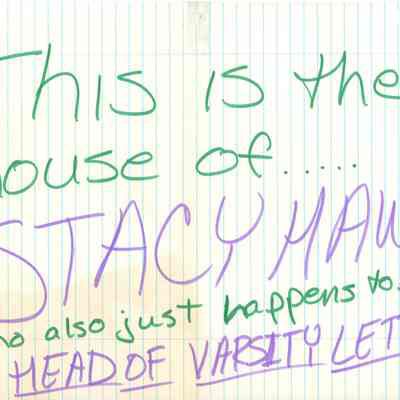 This is the
house of.....
STACY HAW
who also just happens to..
HEAD OF VARSITY LET